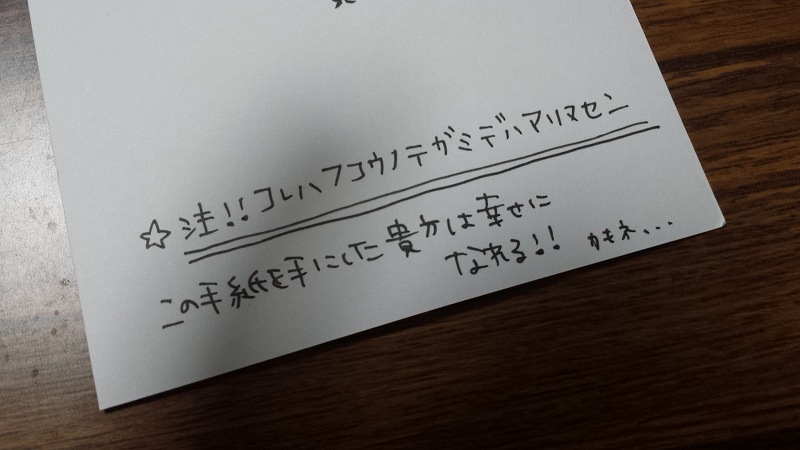 ☆注!!コレハフコウノテガミデハアリマセン
この手紙を手にした貴方は幸せに
なれる!! カモネ...